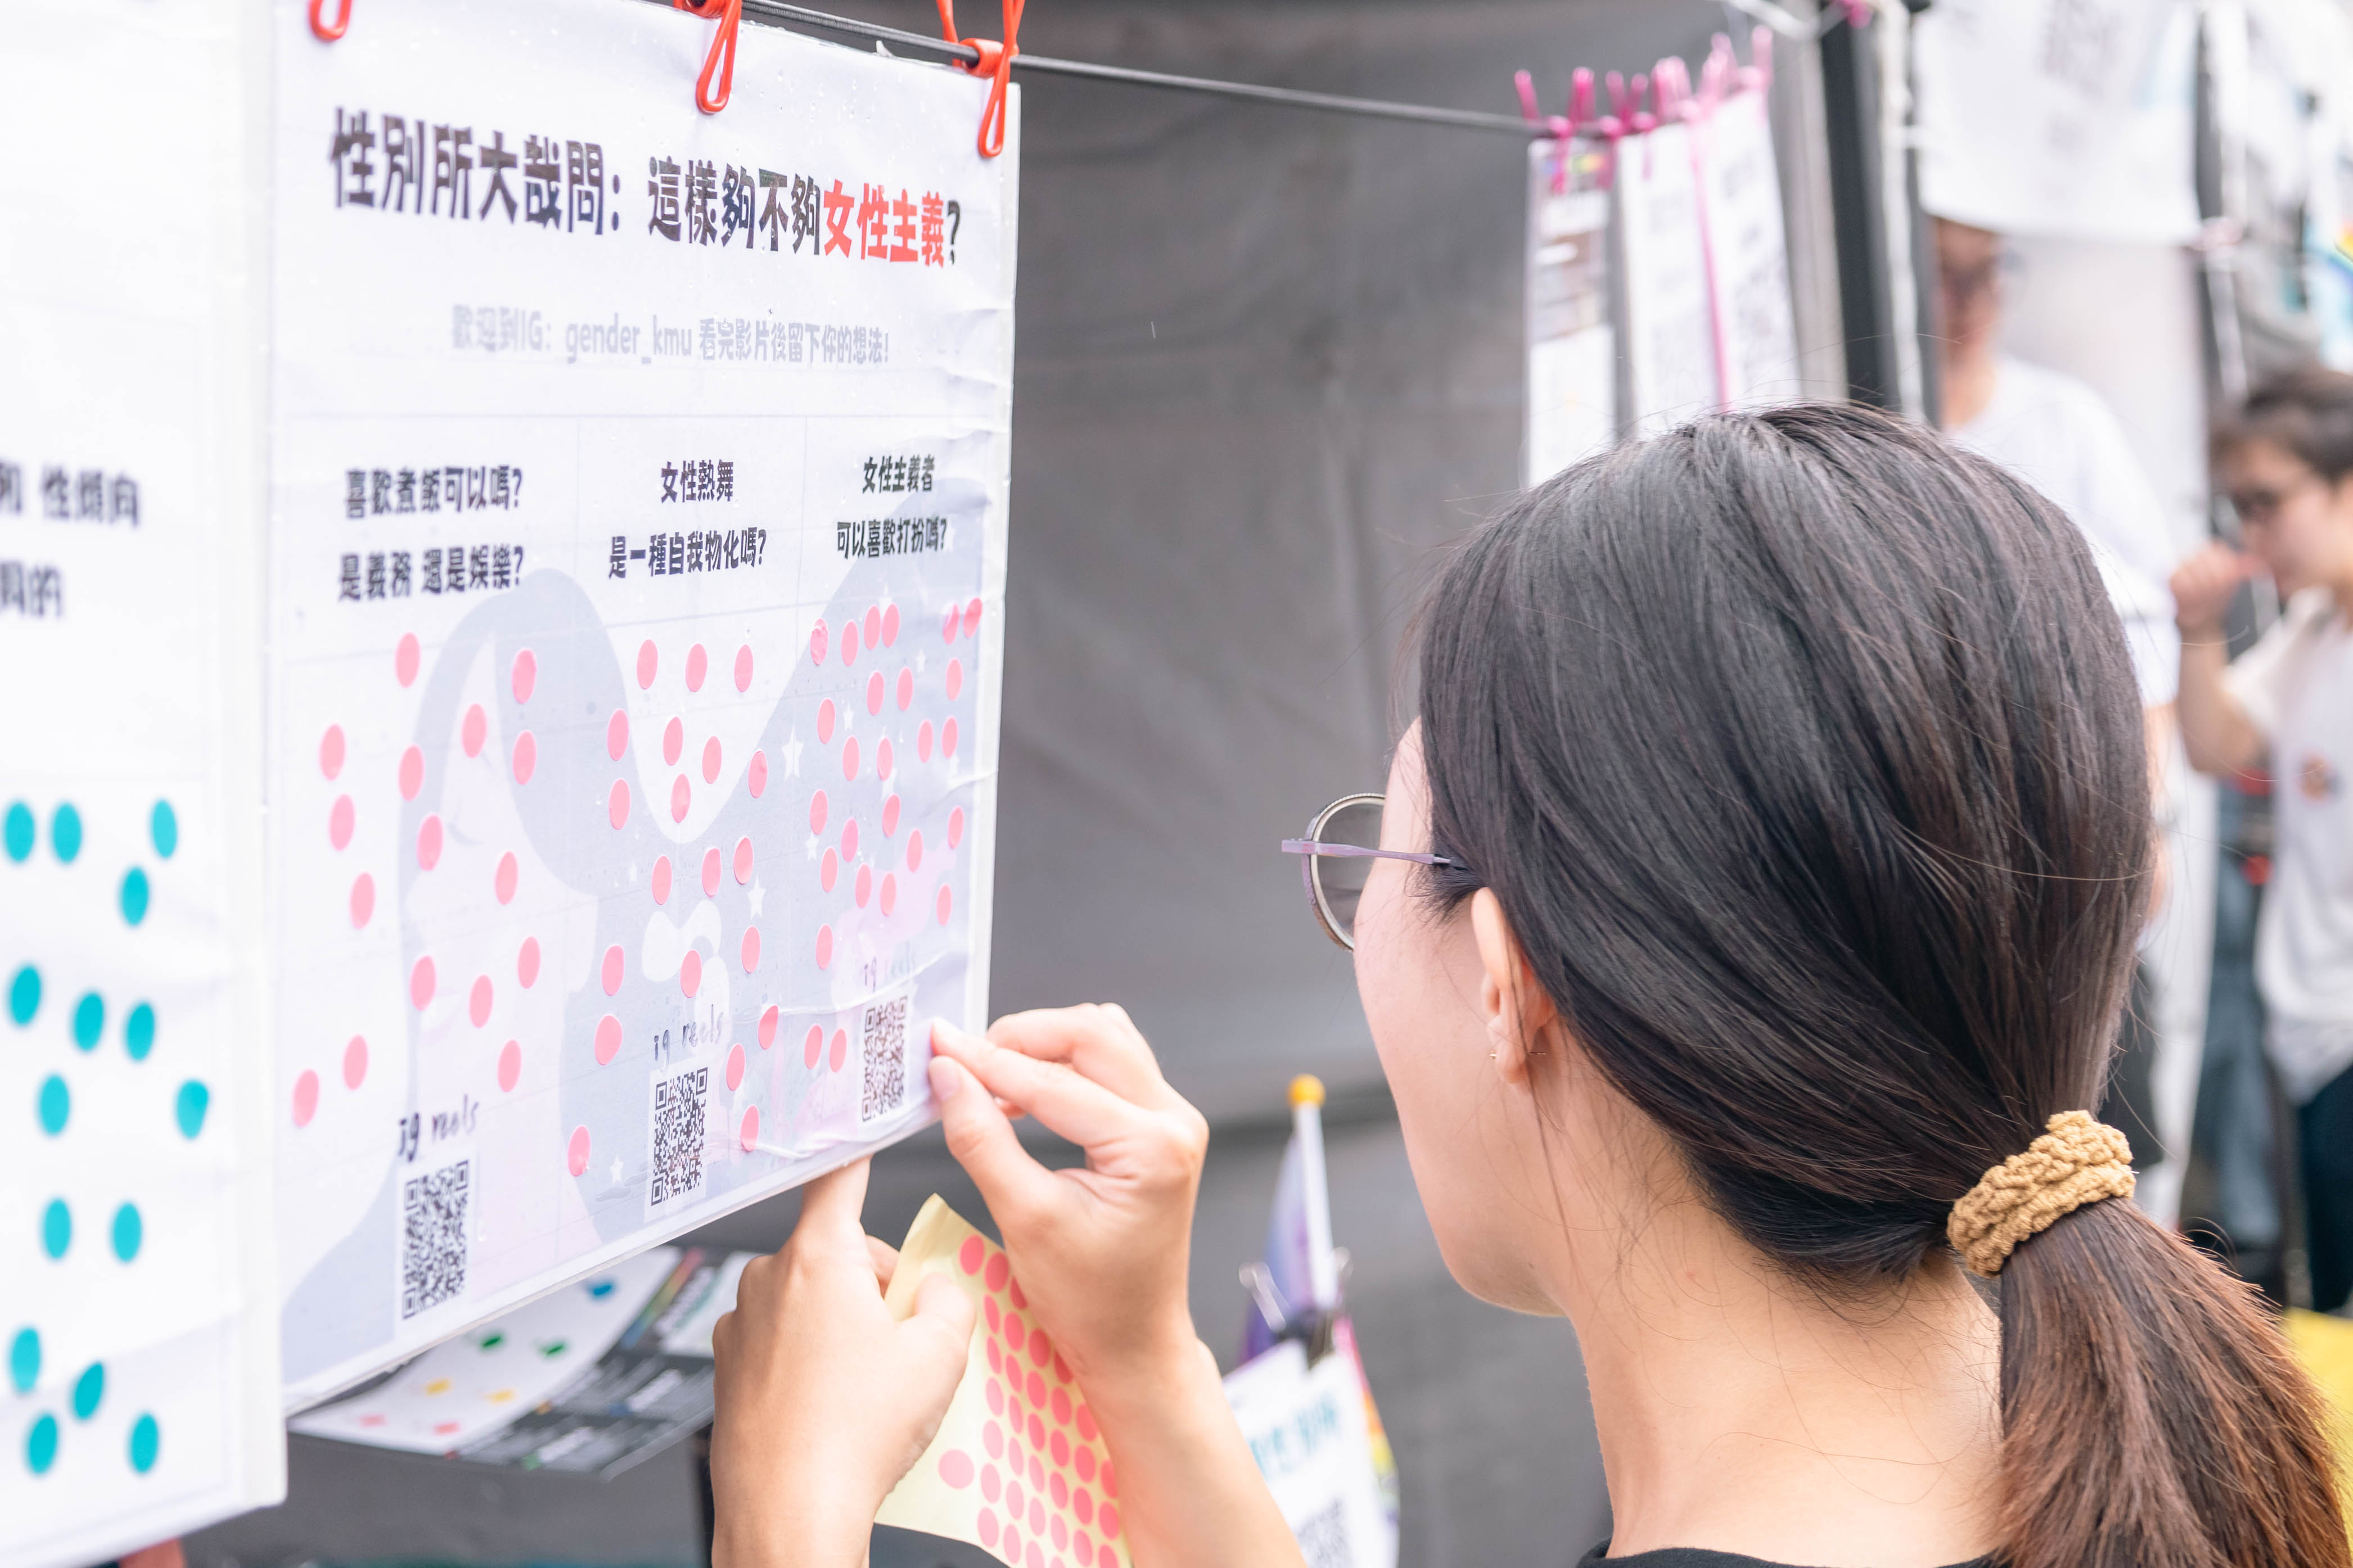 性別所大哉問：這樣夠不夠女性主義？
歡迎到IG：gender_kmu 看完影片後留下你的想法！
喜歡煮飯可以嗎？
是義務 還是娛樂？
女性熱舞
是一種自我物化嗎？
女性主義者
可以喜歡打扮嗎？
ig reels
ig reels
ig reels
和 性傾向
的